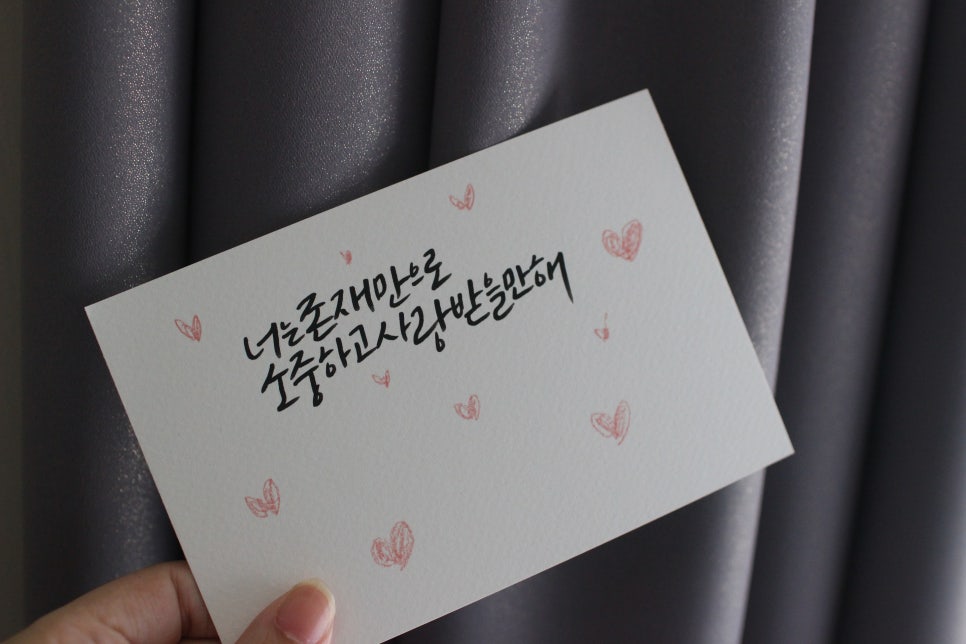 너는 존재만으로
소중하고 사랑받을만해